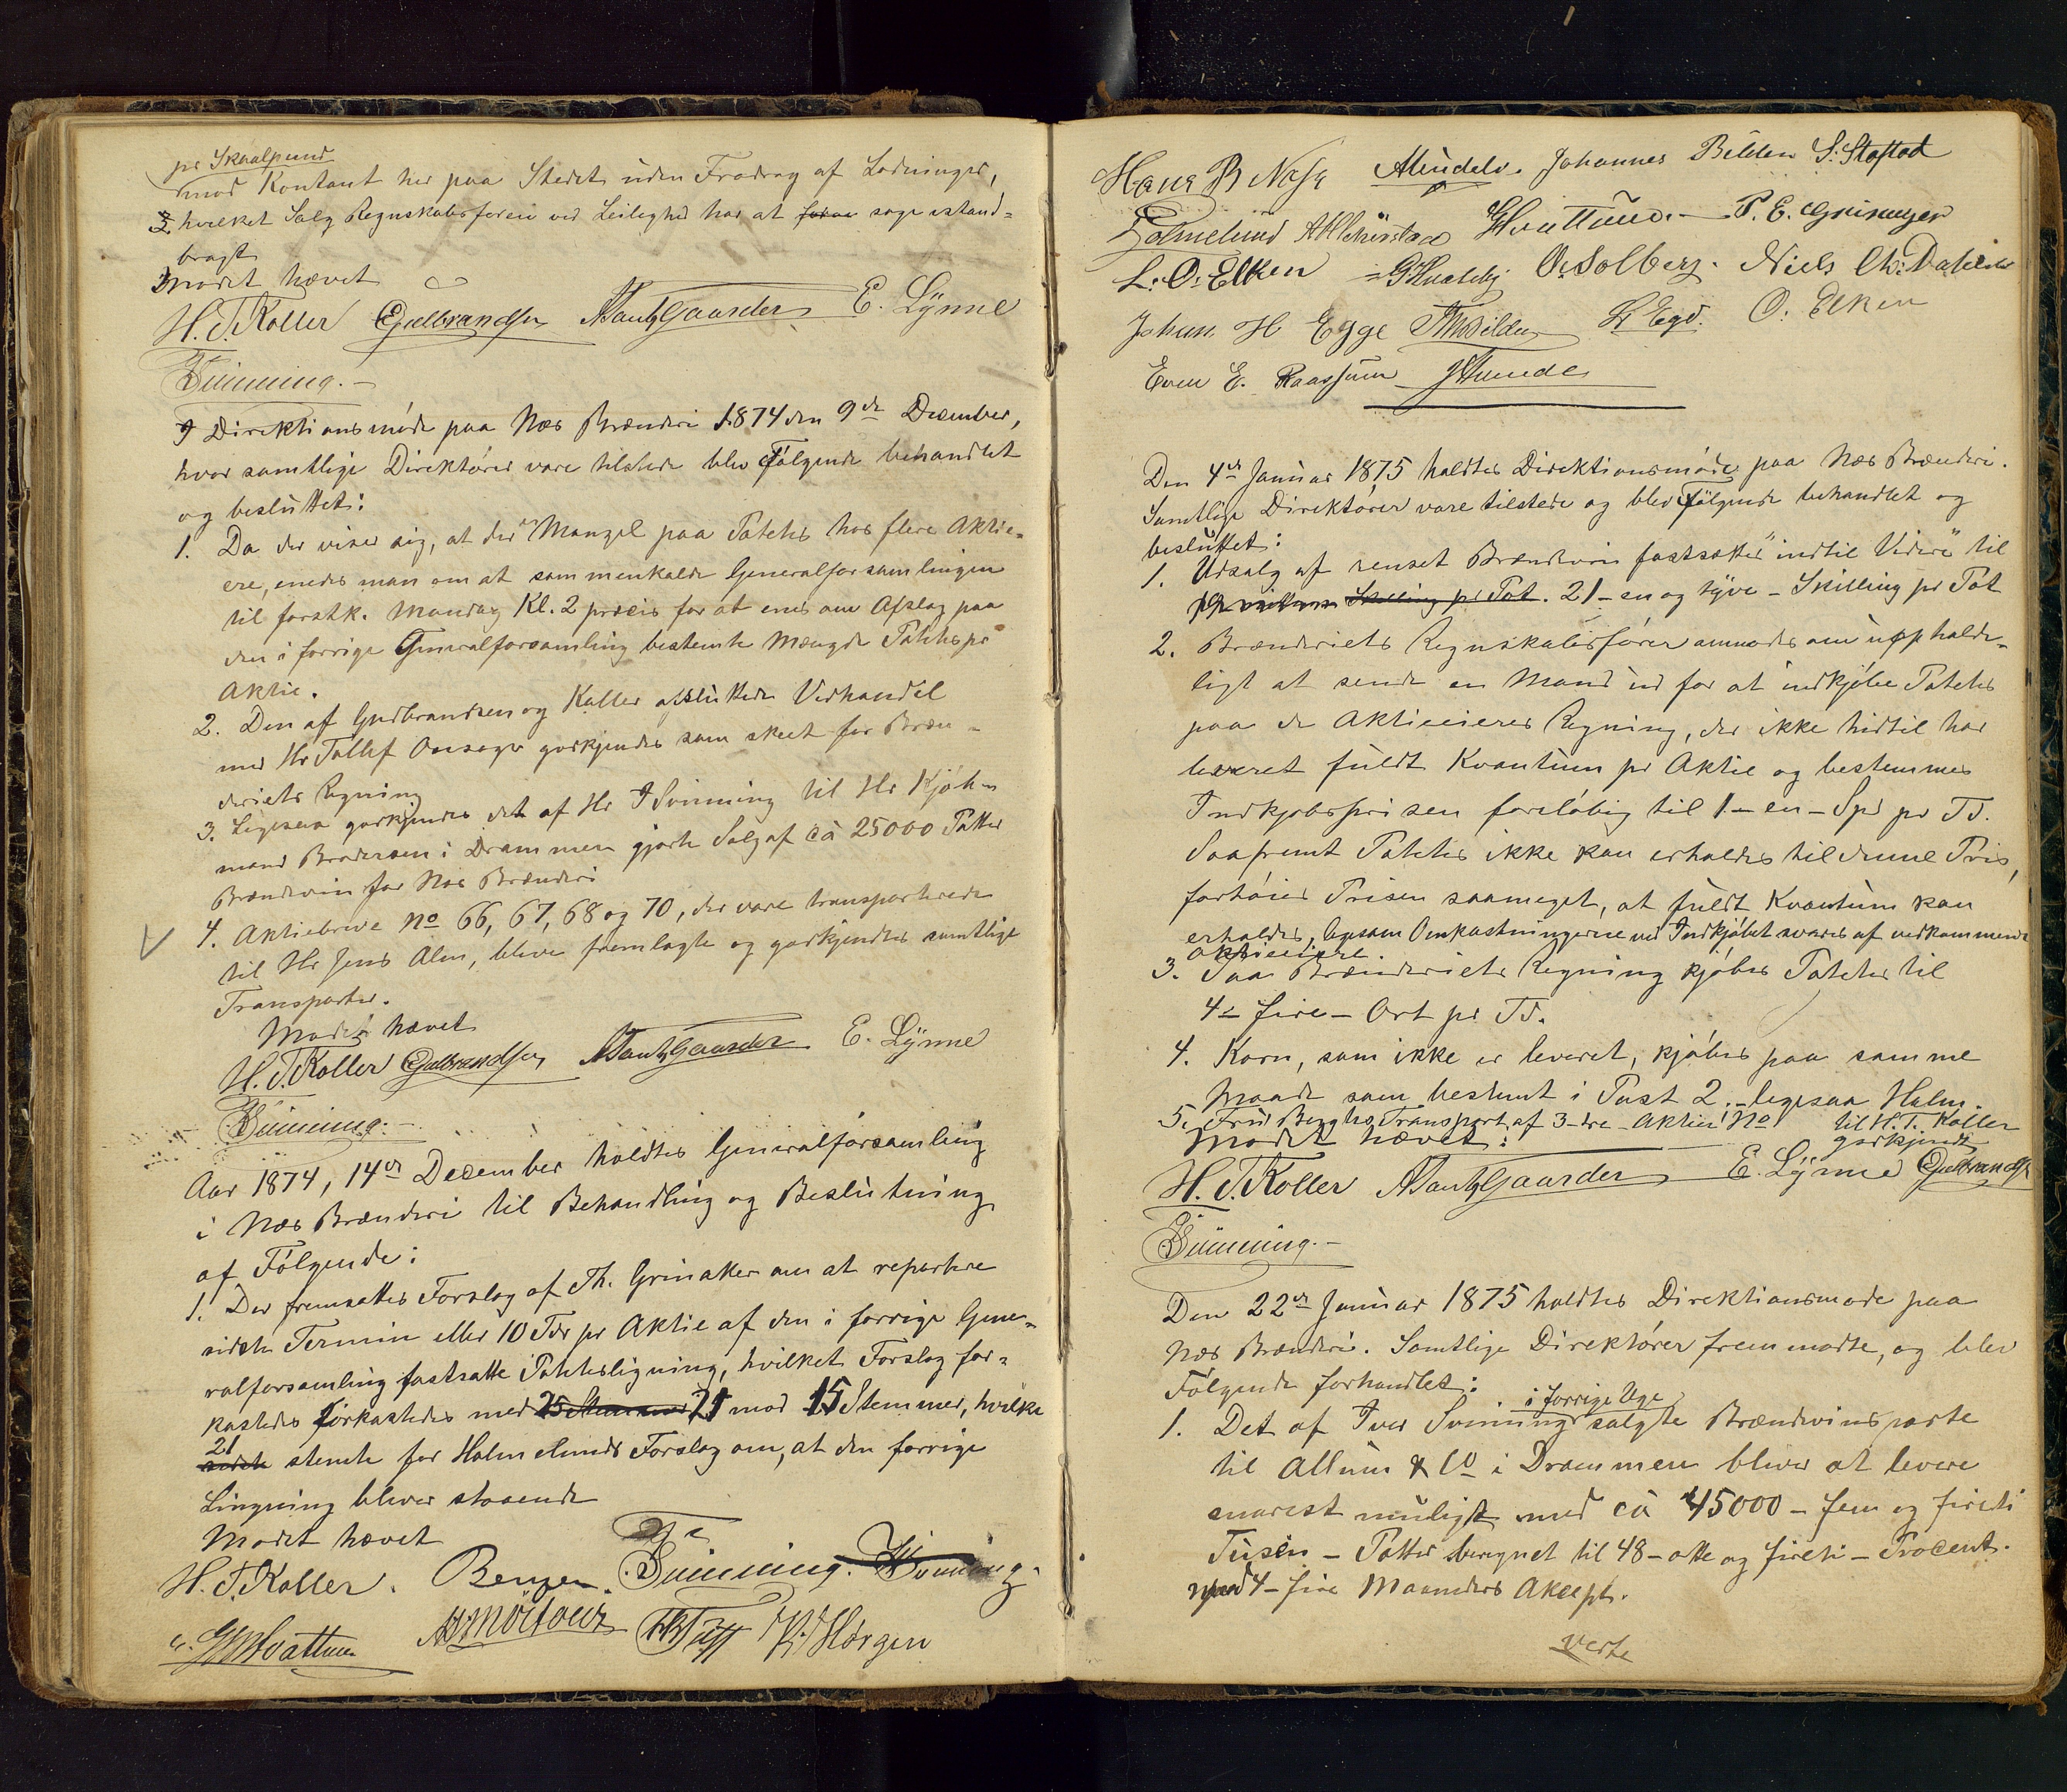 pr Skaalpund
mod Kontant her paa Stedet uden Fradrag af Ladninger,
hvilket Salg Regnskabsføren ved Leilighed har at søge istand-
bragt
Mødet hævet
H. T. Koller Gulbrandsen A Tandz Gaarder E. Lynne
Svinning.-
I Direktionsmøde paa Næs Brænderi 1874 den 9de December,
hvor samtlige Direktører vare tilstede blev Følgende behandlet
og besluttet:
1. Da der viser sig, at der er Mangel paa Poteter hos flere Aktie-
ere, enedes man om at sammenkalde Generalforsamlingen
til førstk. Mandag Kl. 2 præcis for at enes om Afslag paa
den i forrige Generalforsamling bestemte Mængde Poteter pr
Aktie.
2. Den af Gudbrandsen og Koller afsluttede Vedhandel
med Hr Tollef Onsager godkjendes som skeet for Bræn-
deriets Regning
3. Ligesaa godkjendes det af Hr I Svinning til Hr Kjøb-
mand Brodersen i Drammen gjorte Salg af ca 25000 Potter
Brændevin for Næs Brænderi
4. Aktiebreve No 66, 67, 68 og 70, der vare transporterede
til Hr Jens Alm, bleve fremlagte og godkjendtes samtlige
Transporter.
Mødet hævet
H. T. Koller Gulbrandsen A Tandz Gaarder E. Lynne
Svinning.-
Aar 1874, 14de December holdtes Generalforsamling
i Næs Brænderi til Behandling og Beslutning
af Følgende:
1. Der fremsattes Forslag af Th. Grinaker om at repartere
sidste Termin eller 10 Tdr pr Aktie af den i forrige Gene-
ralforsamling fastsatte Potetesligning, hvilket Forslag for-
kastedes Forkastedes med 25 Stemmer 21 mod 15 Stemmer, hvilke
21 sidste stemte for Holmelunds Forslag om, at den forrige
Lingning bliver staaende
Mødet hævet
H. T. Koller. Bergen. Svinning. Svinning.
G Hvattum K. Horgen
Hans B Næss Johannes Bilden S. Stafstad
Holmelund Hvattum.- P. E. Grinager
L. O. Elken O. Solberg. Niels Ch: Dahlen
Johan. H Egge Bilden O. Elken
Even E. Raassum
Den 4de Januar 1875 holdtes Direktionsmøde paa Næs Brænderi.
Samtlige Direktører vare tilstede og blev Følgende behandlet og
besluttet:
1. Udsalg af renset Brændevin fastsættes "indtil Videre" til
Skilling pr Pot. 21 - en og tyve - Skilling pr Pot
2. Brænderiets Regnskabsfører anmodes om uopholde-
ligt at sende en Mand ud for at indkjøbe Poteter
paa de Aktieeieres Regning, der ikke hidtil har
leveret fuldt Kvantum pr Aktie og bestemmes
Indkjøbsprisen foreløbig til 1 - en - Spd pr Td.
Saafremt Poteter ikke kan erholdes til denne Pris,
forhøies Prisen saameget, at fuldt Kvantum kan
erholdes, ligesom Omkostningerne ved Indkjøbet svares af vedkommende
Aktieeiere
3. Paa Brænderiets Regning kjøbes Poteter til
4 - fire - Ort pr Td.
4. Korn, som ikke er leveret, kjøbes paa samme
Maade som bestemt i Post 2. - ligesaa Halm.
5. Fru Berghs Transport af 3 - tre - Aktier No til H. T. Koller
godkjendt
Mødet hævet:
H. T. Koller A Tandz Gaarder E. Lynne Gulbrandsen
Svinning.-
Den 22de Januar 1875 holdtes Direktionsmøde paa
Næs Brænderi. Samtlige Direktører fremmødte, og blev
Følgende forhandlet:
i forrige Uge
1. Det af Iver Svinning solgte Brændevinsparti
til Allum & Co i Drammen bliver at levere
snarest muligst med ca 45000 - fem og firti
Tusen - Potter beregnet til 48 - otte og firti - Procent.
mod 4 - fire Maaneders Aksept.
Verte